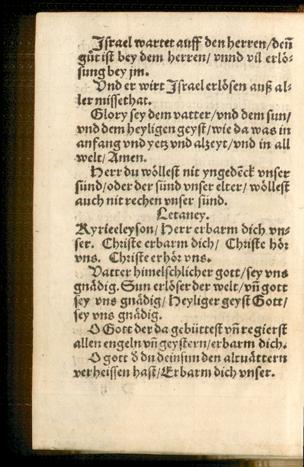 Israel wartet auff den herren/ den̄
gůt ist bey dem herren/ vnnd vil erlö-
sung bey jm.
Vnd er wirt Israel erlösen auß al-
ler missethat.
Glory sey dem vatter/ vnd dem sun/
vnd dem heyligen geyst/ wie da was in
anfang vnd yetz vnd alzeyt/ vnd in all
welt/ Amen.
Herr du wöllest nit yngedēck vnser
sünd/ oder der sünd vnser elter/ wöllest
auch nit rechen vnser sünd.
Letaney.
Kyrieeleyson/ Herr erbarm dich vn-
ser. Christe erbarm dich/ Christe hör
vns. Christe erhör vns.
Vatter himelschlicher gott/ sey vns
gnädig. Sun erlöser der welt/ vn̄ gott
sey vns gnädig/ Heyliger geyst Gott/
sey vns gnädig.
O Gott der da gebüttest vn̄ regierst
allen engeln vn̄ geystern/ erbarm dich.
O gott d du dein sun den altuättern
verheissen hast/ Erbarm dich vnser.